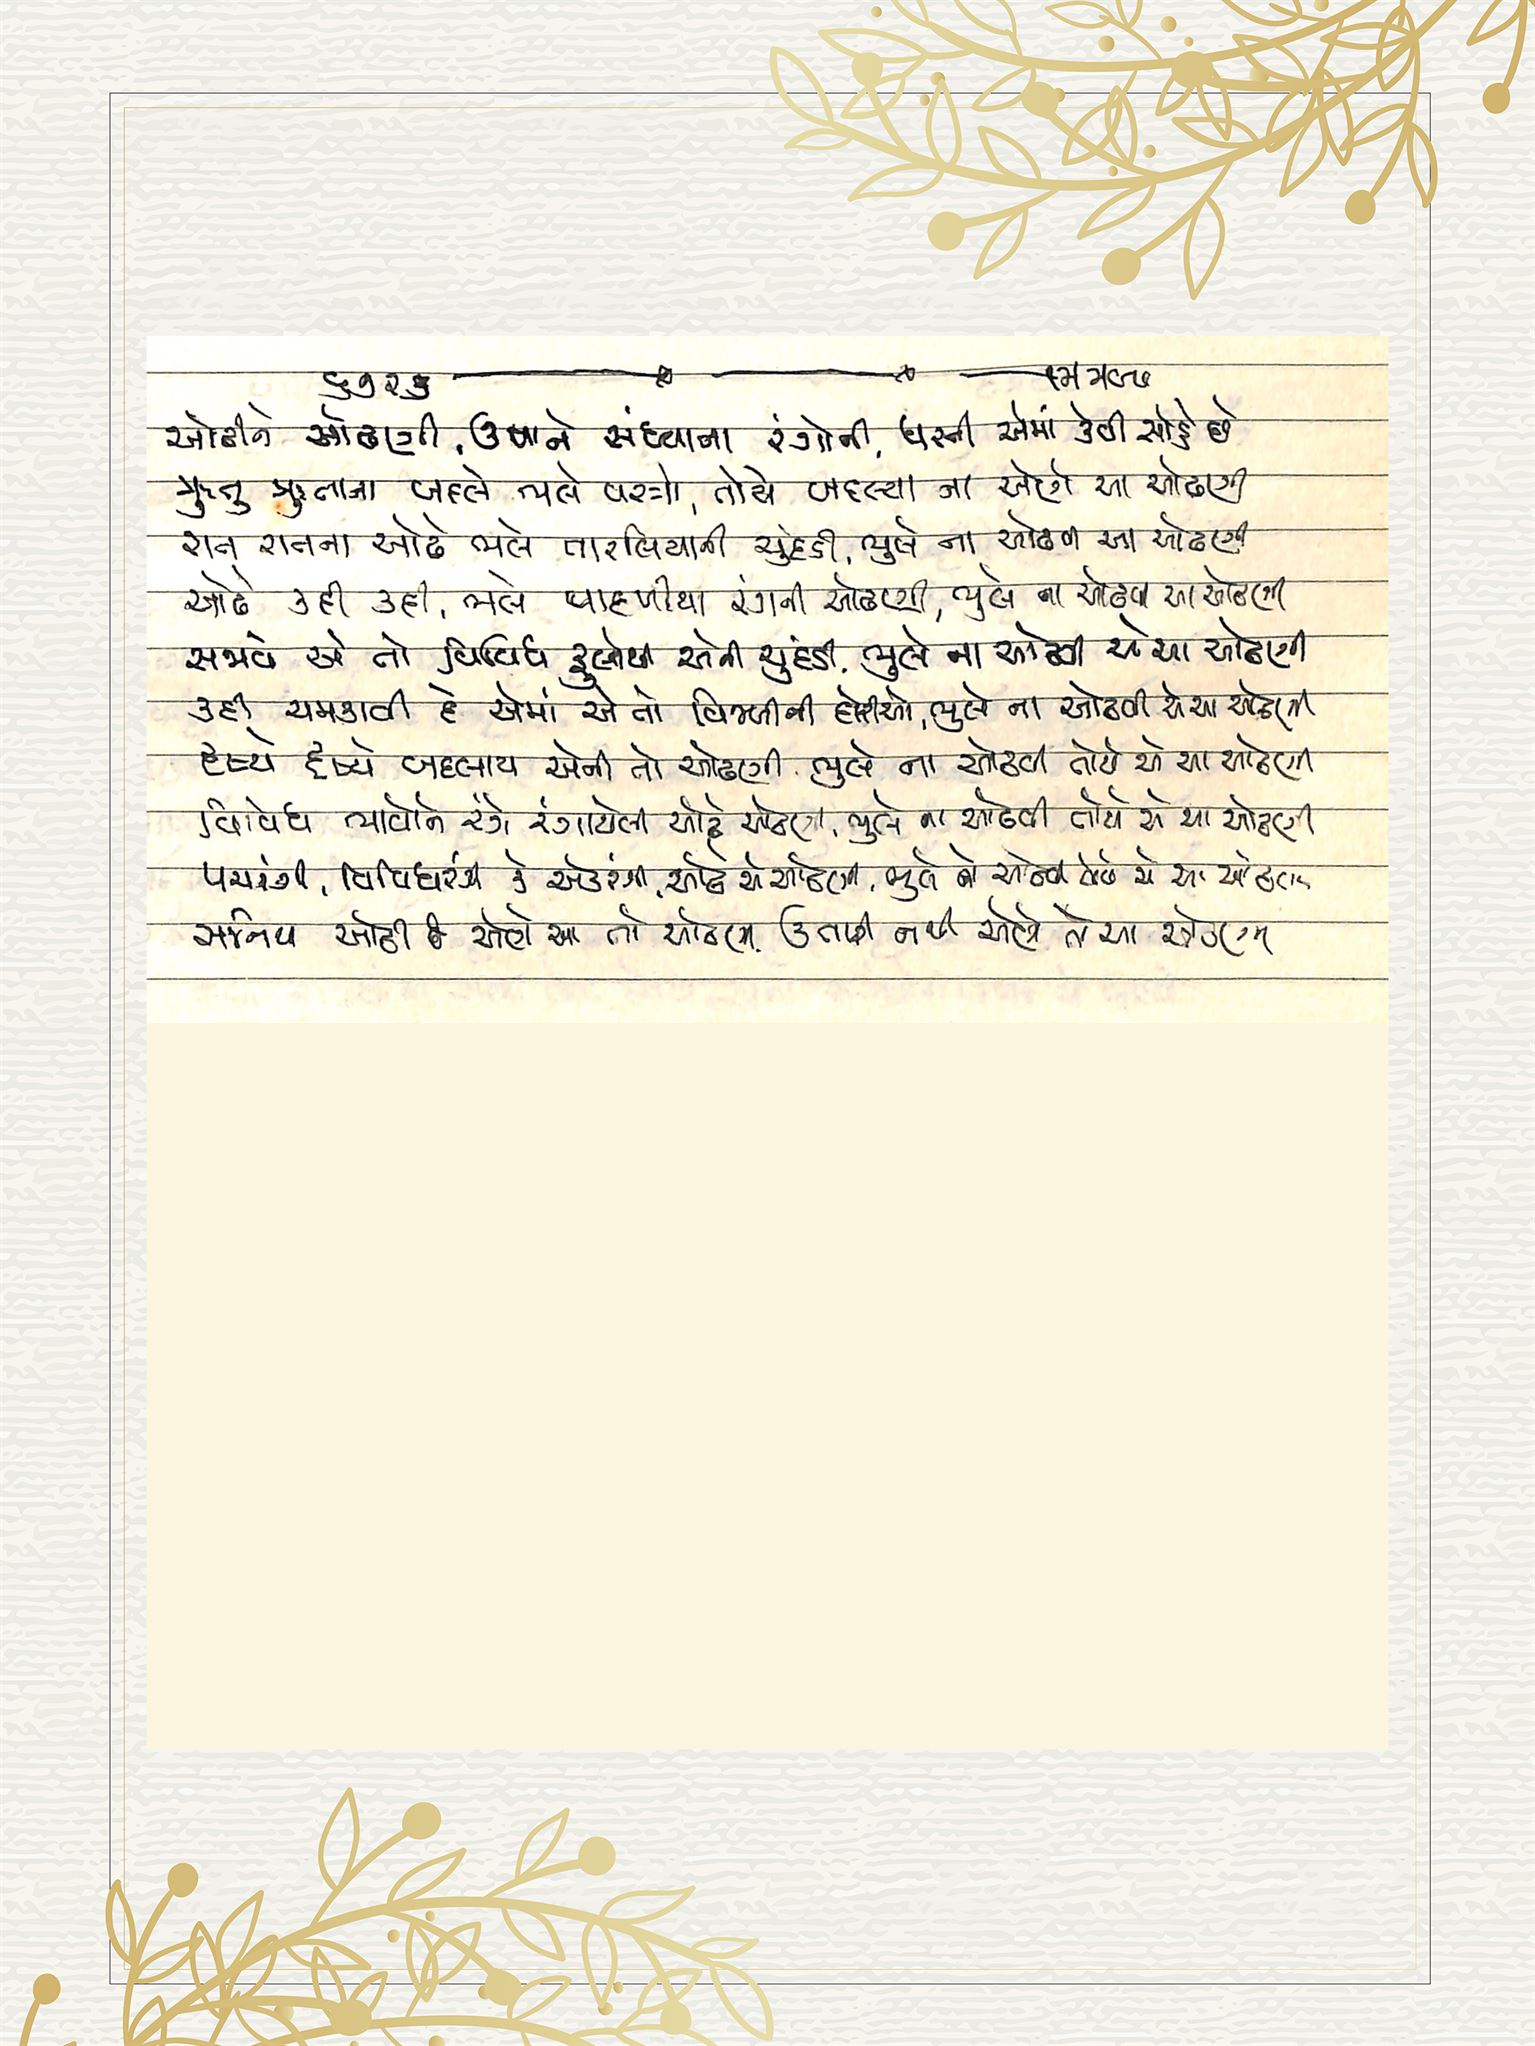 ઓઢીને ઓઢણી, ઉષાને સંધ્યાના રંગોની, ધરતી એમાં કેવી સોહે છે
ઋતુ ઋતુના બદલે ભલે વસ્ત્રો, તોયે બદલ્યા ના એણે આ ઓઢણી
રાત રાતના ઓઢે ભલે તારલિયાની ચુંદડી, ભુલે ના ઓઢવી આ ઓઢણી
ઓઢે કદી કદી, ભલે વાદળીયા રંગની ઓઢણી, ભુલે ના ઓઢવી આ ઓઢણી
સજાવે એ તો વિવિધ ફુલોથી એની ચુંદડી, ભુલે ના ઓઢવી એ આ ઓઢણી
કદી ચમકાવી દે એમાં એ તો વિજળીની દોરીઓ, ભુલે ના ઓઢવી એ આ ઓઢણી
દૃષ્યે દૃષ્યે બદલાય એની તો ઓઢણી, ભુલે ના ઓઢવી તોયે એ આ ઓઢણી
વિવિધ ભાવોને રંગે રંગાયેલી ઓઢે ઓઢણી, ભુલે ના ઓઢવી તોયે એ આ ઓઢણી
પચરંગી, વિવિધરંગી કે એકરંગી, ઓઢે એ ઓઢણી, ભુલે ના ઓઢવી તોયે એ આ ઓઢણી
ઓઢી છે એણે આ તો ઓઢણી, ઉતારી નથી એણે તો આ ઓઢણી